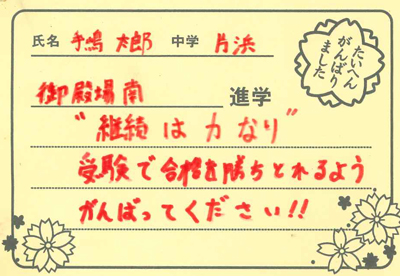 氏名 手嶋 太郎 中学 片浜
たいへん
がんばり
ました
御殿場南 進学
"継続は力なり"
受験で合格を勝ちとれるよう
がんばってください!!